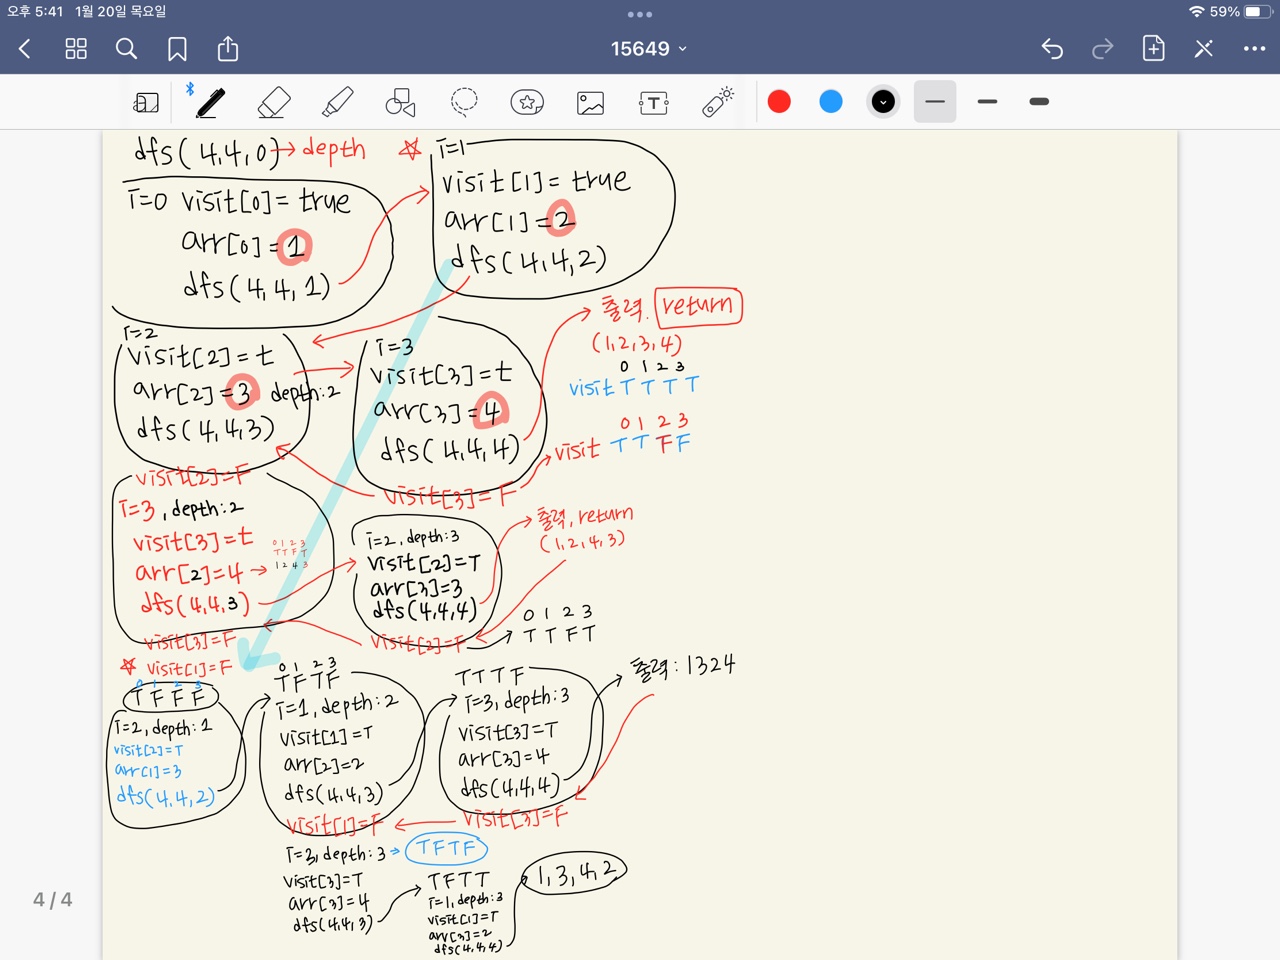 오후 5:41 1월 20일 목요일
59%
15649
dfs(4,4,0)→depth
i=0 visit[0]=true
arr[0]=1
dfs(4,4,1)
☆ i=1
visit[1]=true
arr[1]=2
dfs(4,4,2)
i=2
visit[2]=t
arr[2]=3 depth:2
dfs(4,4,3)
visit[2]=F
i=3
visit[3]=t
arr[3]=4
dfs(4,4,4)
visit[3]=F
출력. return
(1,2,3,4)
0 1 2 3
visit T T T T
0 1 2 3
visit T T F F
i=3, depth:2
visit[3]=t
arr[2]=4 →
dfs(4,4,3)
0 1 2 3
T T F T
1 2 4 3
visit[3]=F
☆ visit[1]=F
i=2, depth:3
visit[2]=T
arr[3]=3
dfs(4,4,4)
visit[2]=F
출력, return
(1,2,4,3)
0 1 2 3
T T F T
0 1 2 3
T F F F
i=2, depth:1
visit[2]=T
arr[1]=3
dfs(4,4,2)
0 1 2 3
T F T F
i=1, depth:2
visit[1]=T
arr[2]=2
dfs(4,4,3)
visit[1]=F
T T T F
i=3, depth:3
visit[3]=T
arr[3]=4
dfs(4,4,4)
visit[3]=F
출력: 1324
i=3, depth:3 → TFTF
visit[3]=T
arr[3]=4
dfs(4,4,3)
TFTT
i=1, depth:3
visit[1]=T
arr[3]=2
dfs(4,4,4)
1,3,4,2
4 / 4